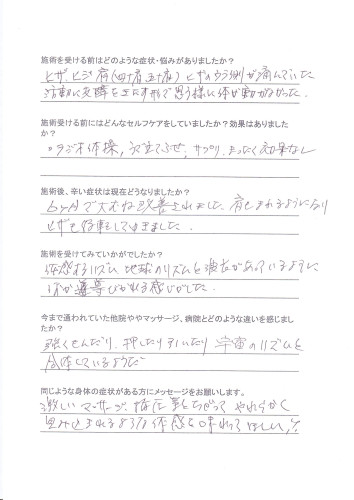 施術を受ける前はどのような症状・悩みがありましたか？
ヒザ、ヒジ、肩(四十肩、五十肩) ヒザのウラ側が痛んでいた
活動に支障をきたす形で思う様に体が動かなかった。
施術受ける前にはどんなセルフケアをしていましたか？効果はありました
か？
ラジオ体操, サプリ, まったく効果なし
施術後、辛い症状は現在どうなりましたか？
6ヶ月で大むね改善されました。肩もまわるようになり
ヒザも好転してきました。
施術を受けてみていかがでしたか？
体感するリズム 地球のリズムと波長があっているように
導びかれる感じがした。
今まで通われていた他院ややマッサージ、病院とどのような違いを感じまし
たか？
強くもんだり、押したり引いたり 宇宙のリズムと
しているようだ
同じような身体の症状がある方にメッセージをお願いします。
激しいマッサージ、指圧等とちがって やわらかく
包み込まれるような体感を味わってほしい